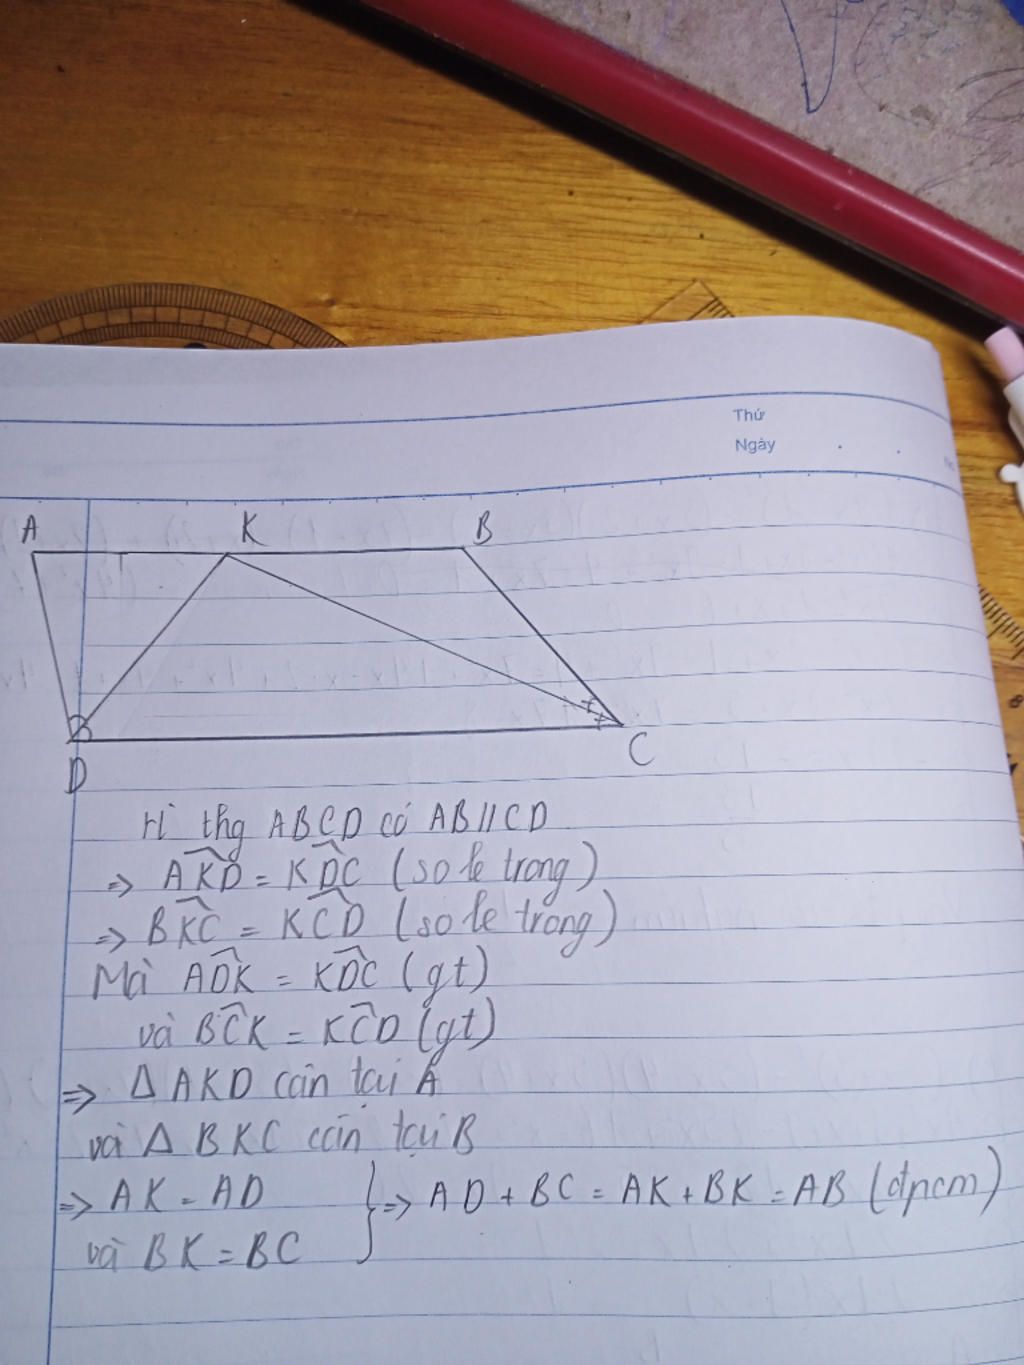 Thứ
Ngày
A K B
D C
Hì thg ABCD có AB//CD
=> AKD = KDC (so le trong)
=> BKC = KCD (so le trong)
Mà ADK = KDC (gt)
và BCK = KCD (gt)
=> Δ AKD cân tại A
và Δ BKC cân tại B
=> AK = AD } => AD + BC = AK + BK = AB (đpcm)
và BK = BC